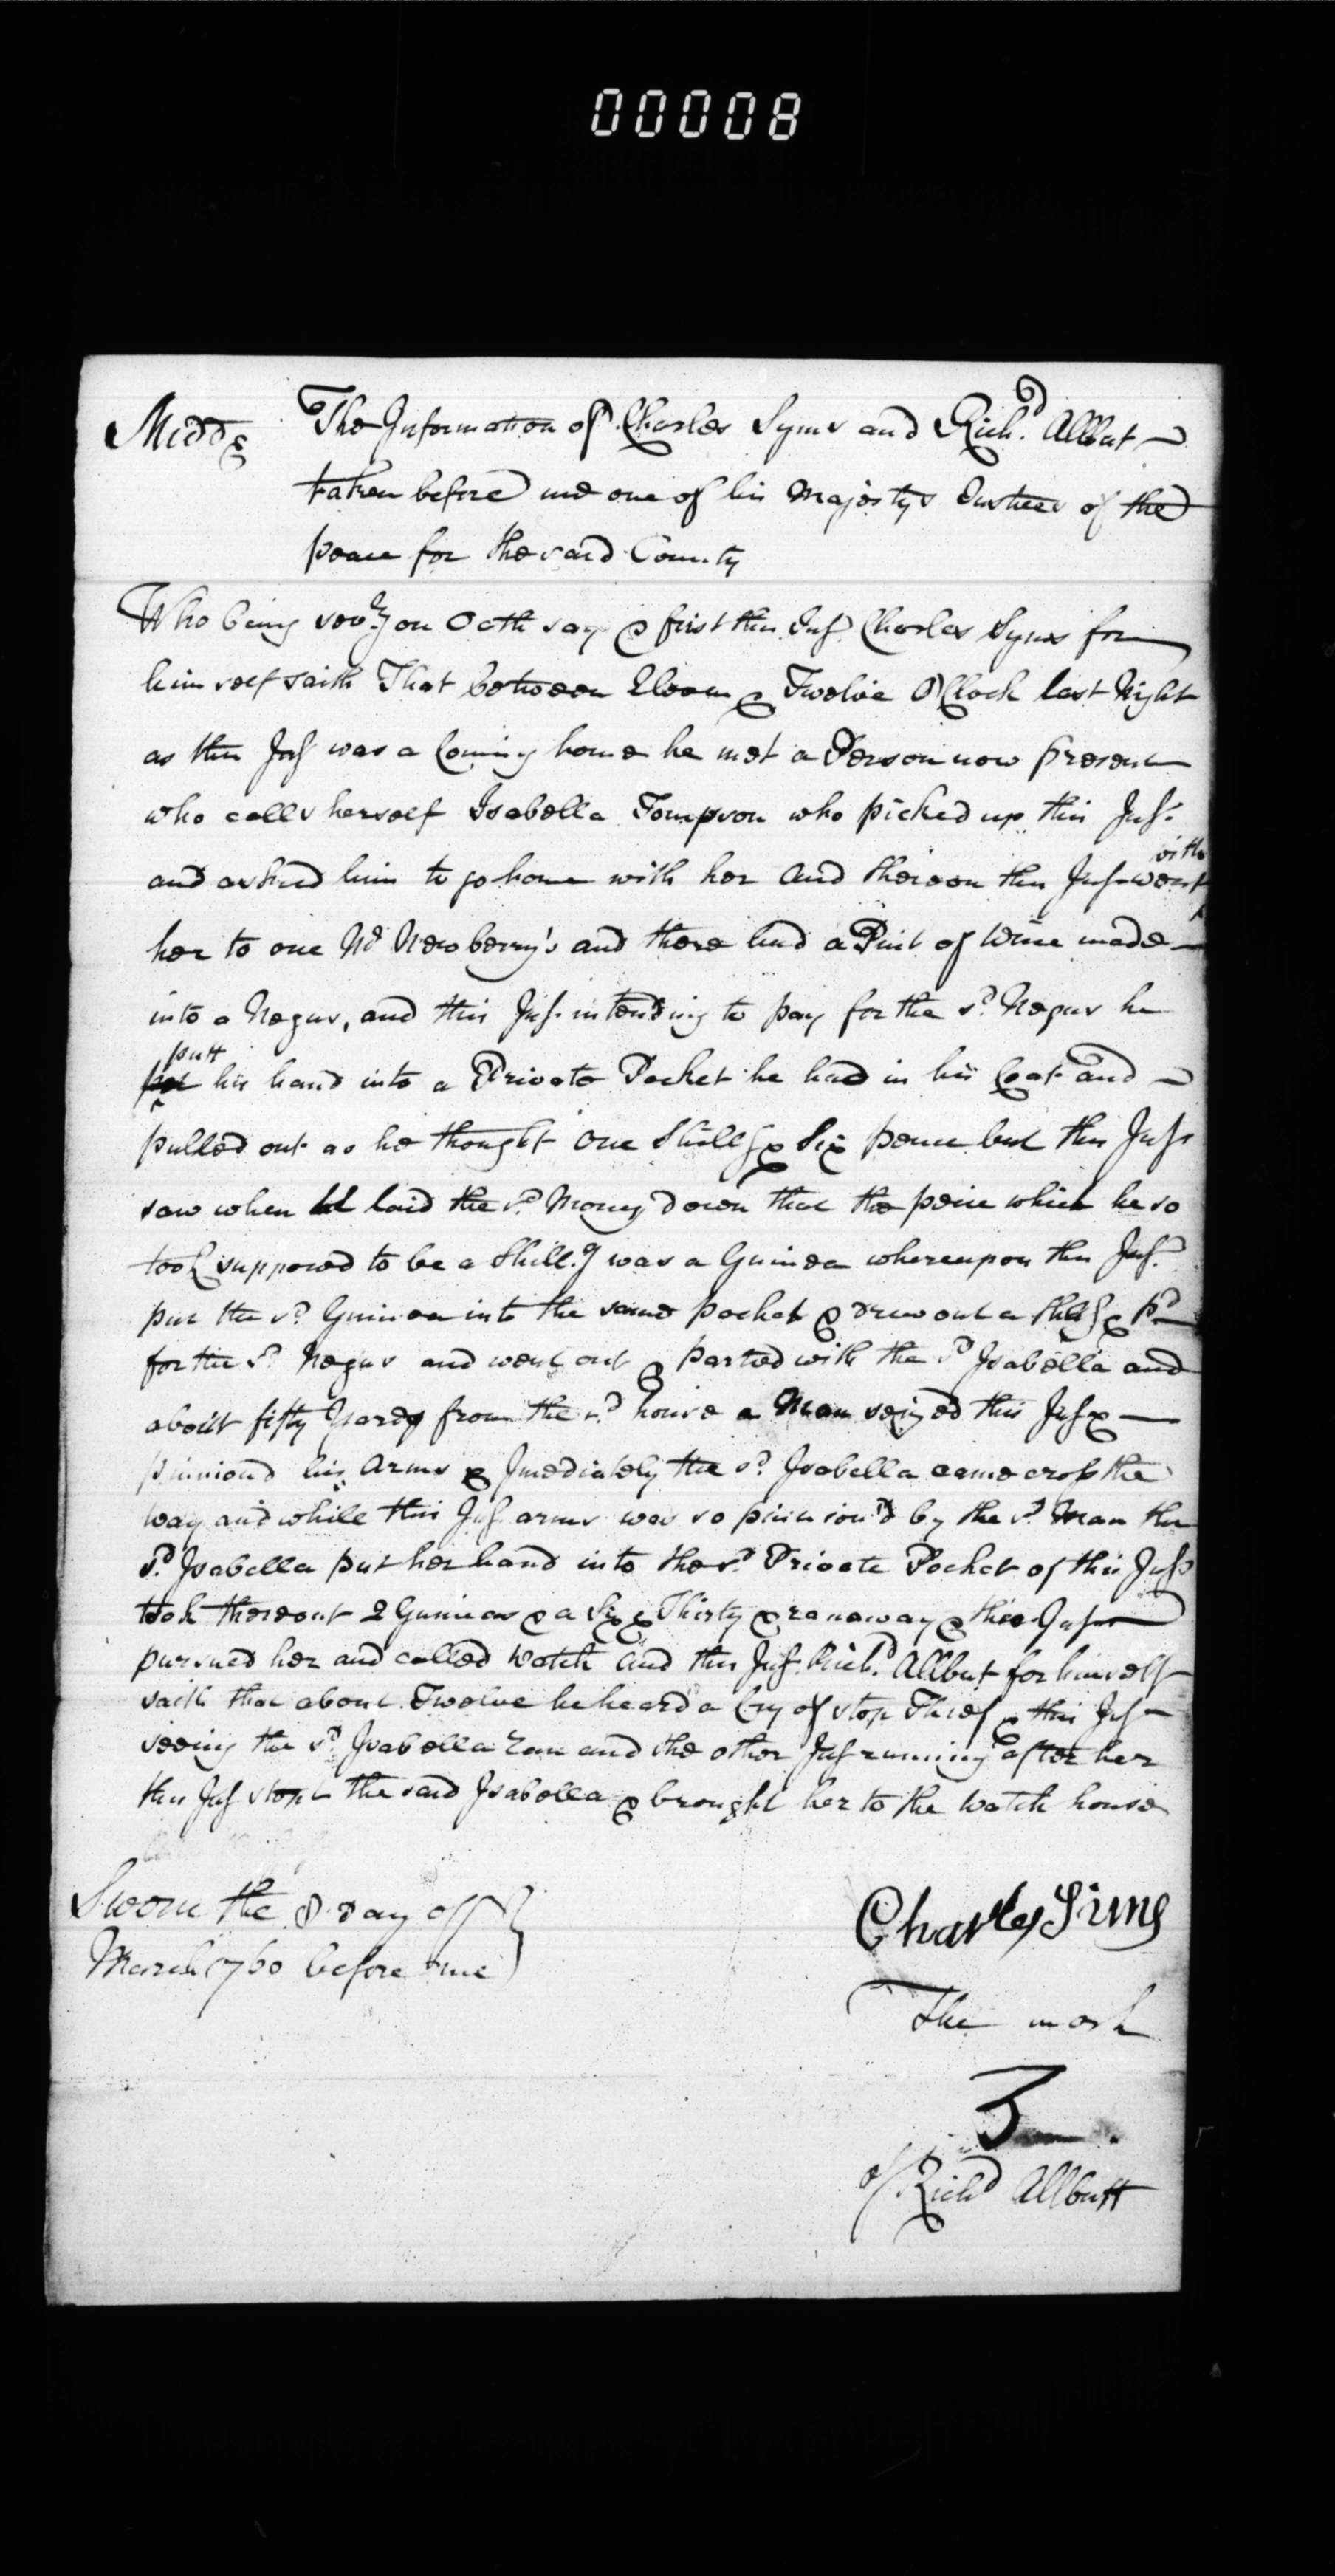 00008
Midds The Information of Charles Syms and Richd. Allbut
taken before me one of his Majestys Justices of the
peace for the said County
Who being sevly on Oath say & first this Inft. Charles Syms for
himself saith That between Eleven & Twelve O'Clock last Night
as this Inf was a Coming home he met a Person now present
who calls herself Isabella Tompson who picked up this Inft.
and asked him to go home with her and thereon this Inft went with
her to one Newberry's and there had a Pint of Wine made
into a Negus, and this Inft. intending to pay for the sd. Negus he
putt his hand into a Private Pocket he had in his Coat and
pulled out as he thought One Shillg & Six pence but this Inft
saw when he laid the sd. Money down that the peice which he so
took supposed to be a Shill.g was a Guinea whereupon this Inft.
put the sd. Guinea into the same pocket & drew out a Shillg & pd
for the sd. Negus and went out & parted with the sd. Isabella and
about fifty Yards from the sd. house a Man seized this Inft &
pinniond his Arms & Imediately the sd. Isabella came cross the
way and while this Inf arms was so pinnion'd by the sd. Man the
sd. Isabella put her hand into the sd. Private Pocket of this Inft
took thereout 2 Guineas & a Six & Thirty & ran away & this Inft
pursued her and called Watch and this Inf. Richd. Allbut for himself
saith that about Twelve he heard a Cry of stop Thief & this Inf
seeing the sd. Isabella ran and the other Inf running after her
this Inf stopt the said Isabella & brought her to the Watch house
Sworn the 8 day of
March 1760 before me
Charles Sims
The mark
3
of Richd Allbutt